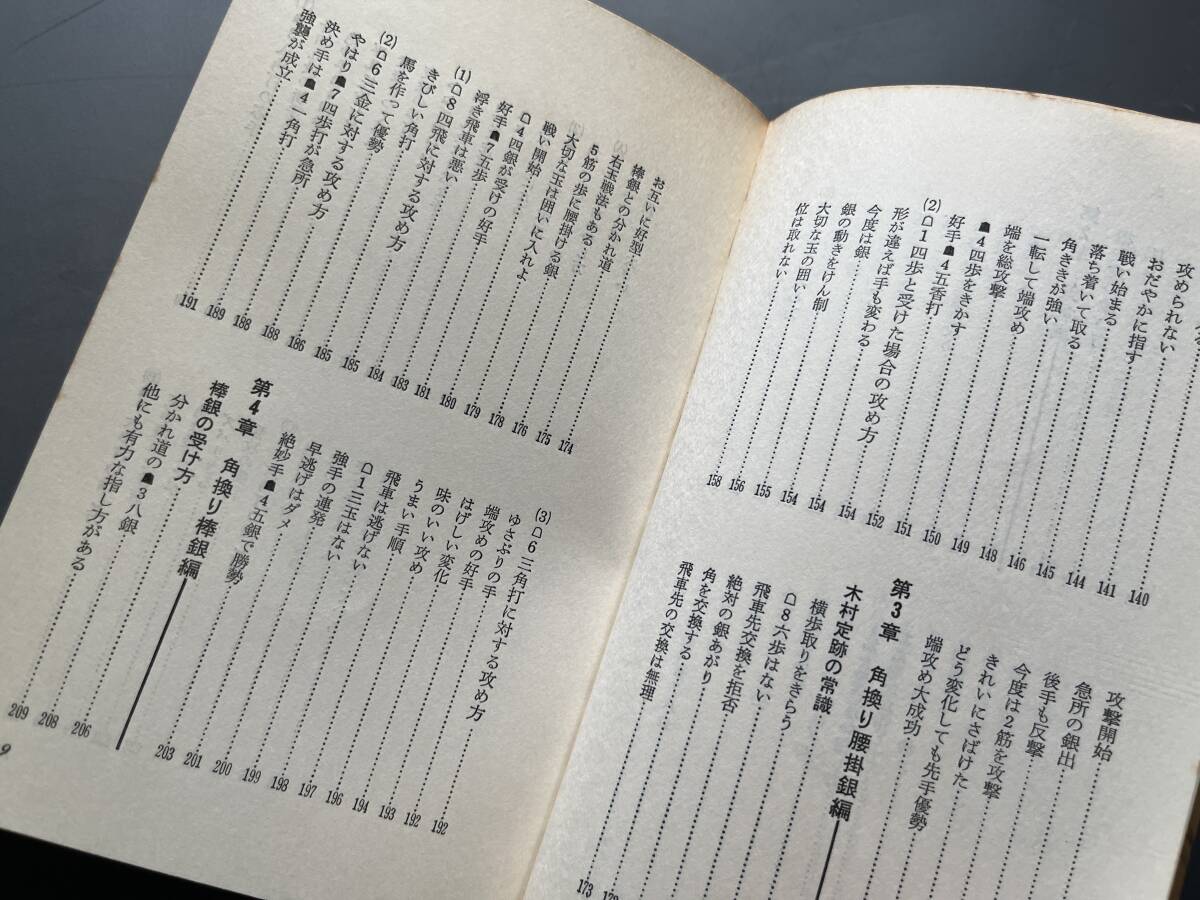 攻められない……141
おだやかに指す……144
戦い始まる……145
落ち着いて取る……146
角ききが強い……148
一転して端攻め……149
端を総攻撃……150
☗4四歩をきかす……151
好手☗4五香打……152
(2)☖1四歩と受けた場合の攻め方……154
形が違えば手も変わる……154
今度は銀……154
銀の動きをけん制……155
大切な玉の囲い……156
位は取れない……158
攻撃開始……
急所の銀出……
後手も反撃……
今度は2筋を攻撃……
きれいにさばけた……
どう変化しても先手優勢……
端攻め大成功……
第3章 角換り腰掛銀編
木村定跡の常識……
横歩取りをきらう……
☖8六歩はない……
飛車先交換を拒否……
絶対の銀あがり……
角を交換する……
飛車先の交換は無理……173
お互いに好型……174
棒銀との分かれ道……175
右玉戦法もある……176
5筋の歩に腰掛ける銀……178
大切な玉は囲いに入れよ……179
戦い開始……180
☖4四銀が受けの好手……181
好手☗7五歩……183
浮き飛車は悪い……184
(1)☖8四飛に対する攻め方……185
きびしい角打……185
馬を作って優勢……186
(2)☖6三金に対する攻め方……188
やはり☗7四歩打が急所……188
決め手は☗4一角打……189
強襲が成立……191
(3)☖6三角打に対する攻め方……192
ゆさぶりの手……192
端攻めの好手……193
はげしい変化……194
味のいい攻め……196
うまい手順……197
飛車は逃げない……198
☖1三玉はない……199
強手の連発……200
早逃げはダメ……201
絶妙手☗4五銀で勝勢……203
第4章 角換り棒銀編
棒銀の受け方……206
分かれ道の☗3八銀……208
他にも有力な指し方がある……209
9